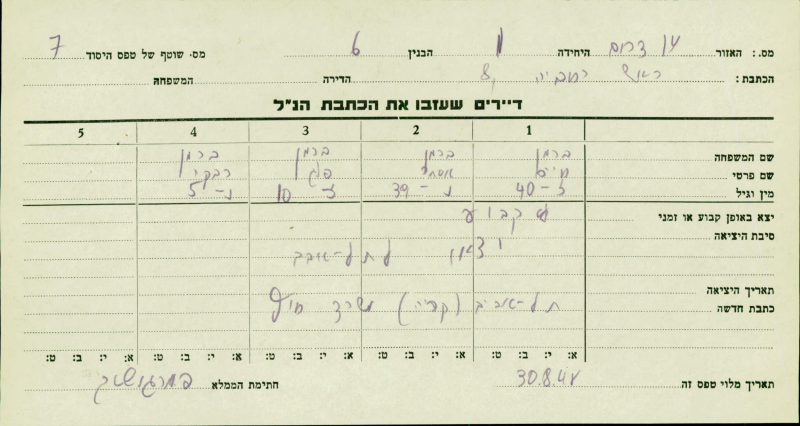 מס.: האזור ען דרום היחידה 1 הבנין 6 מס. שוטף של טפס היסוד 7
הכתבת: ראש רחביה 8 הדירה המשפחה
דיירים שעזבו את הכתבת הנ"ל
1 2 3 4 5
שם המשפחה ברמן ברמן ברמן ברמן
שם פרטי חיים אסתר פלג רבקה
מין וגיל ז-40 נ-39 ז-10 נ-5
יצא באופן קבוע או זמני קבוע
סיבת היציאה יצאו לתל-אביב
תאריך היציאה
כתבת חדשה תל-אביב (קריה) משרד
א: י: ב: ט: א: י: ב: ט: א: י: ב: ט: א: י: ב: ט: א: י: ב: ט:
תאריך מלוי טפס זה 30.8.48 חתימת הממלא